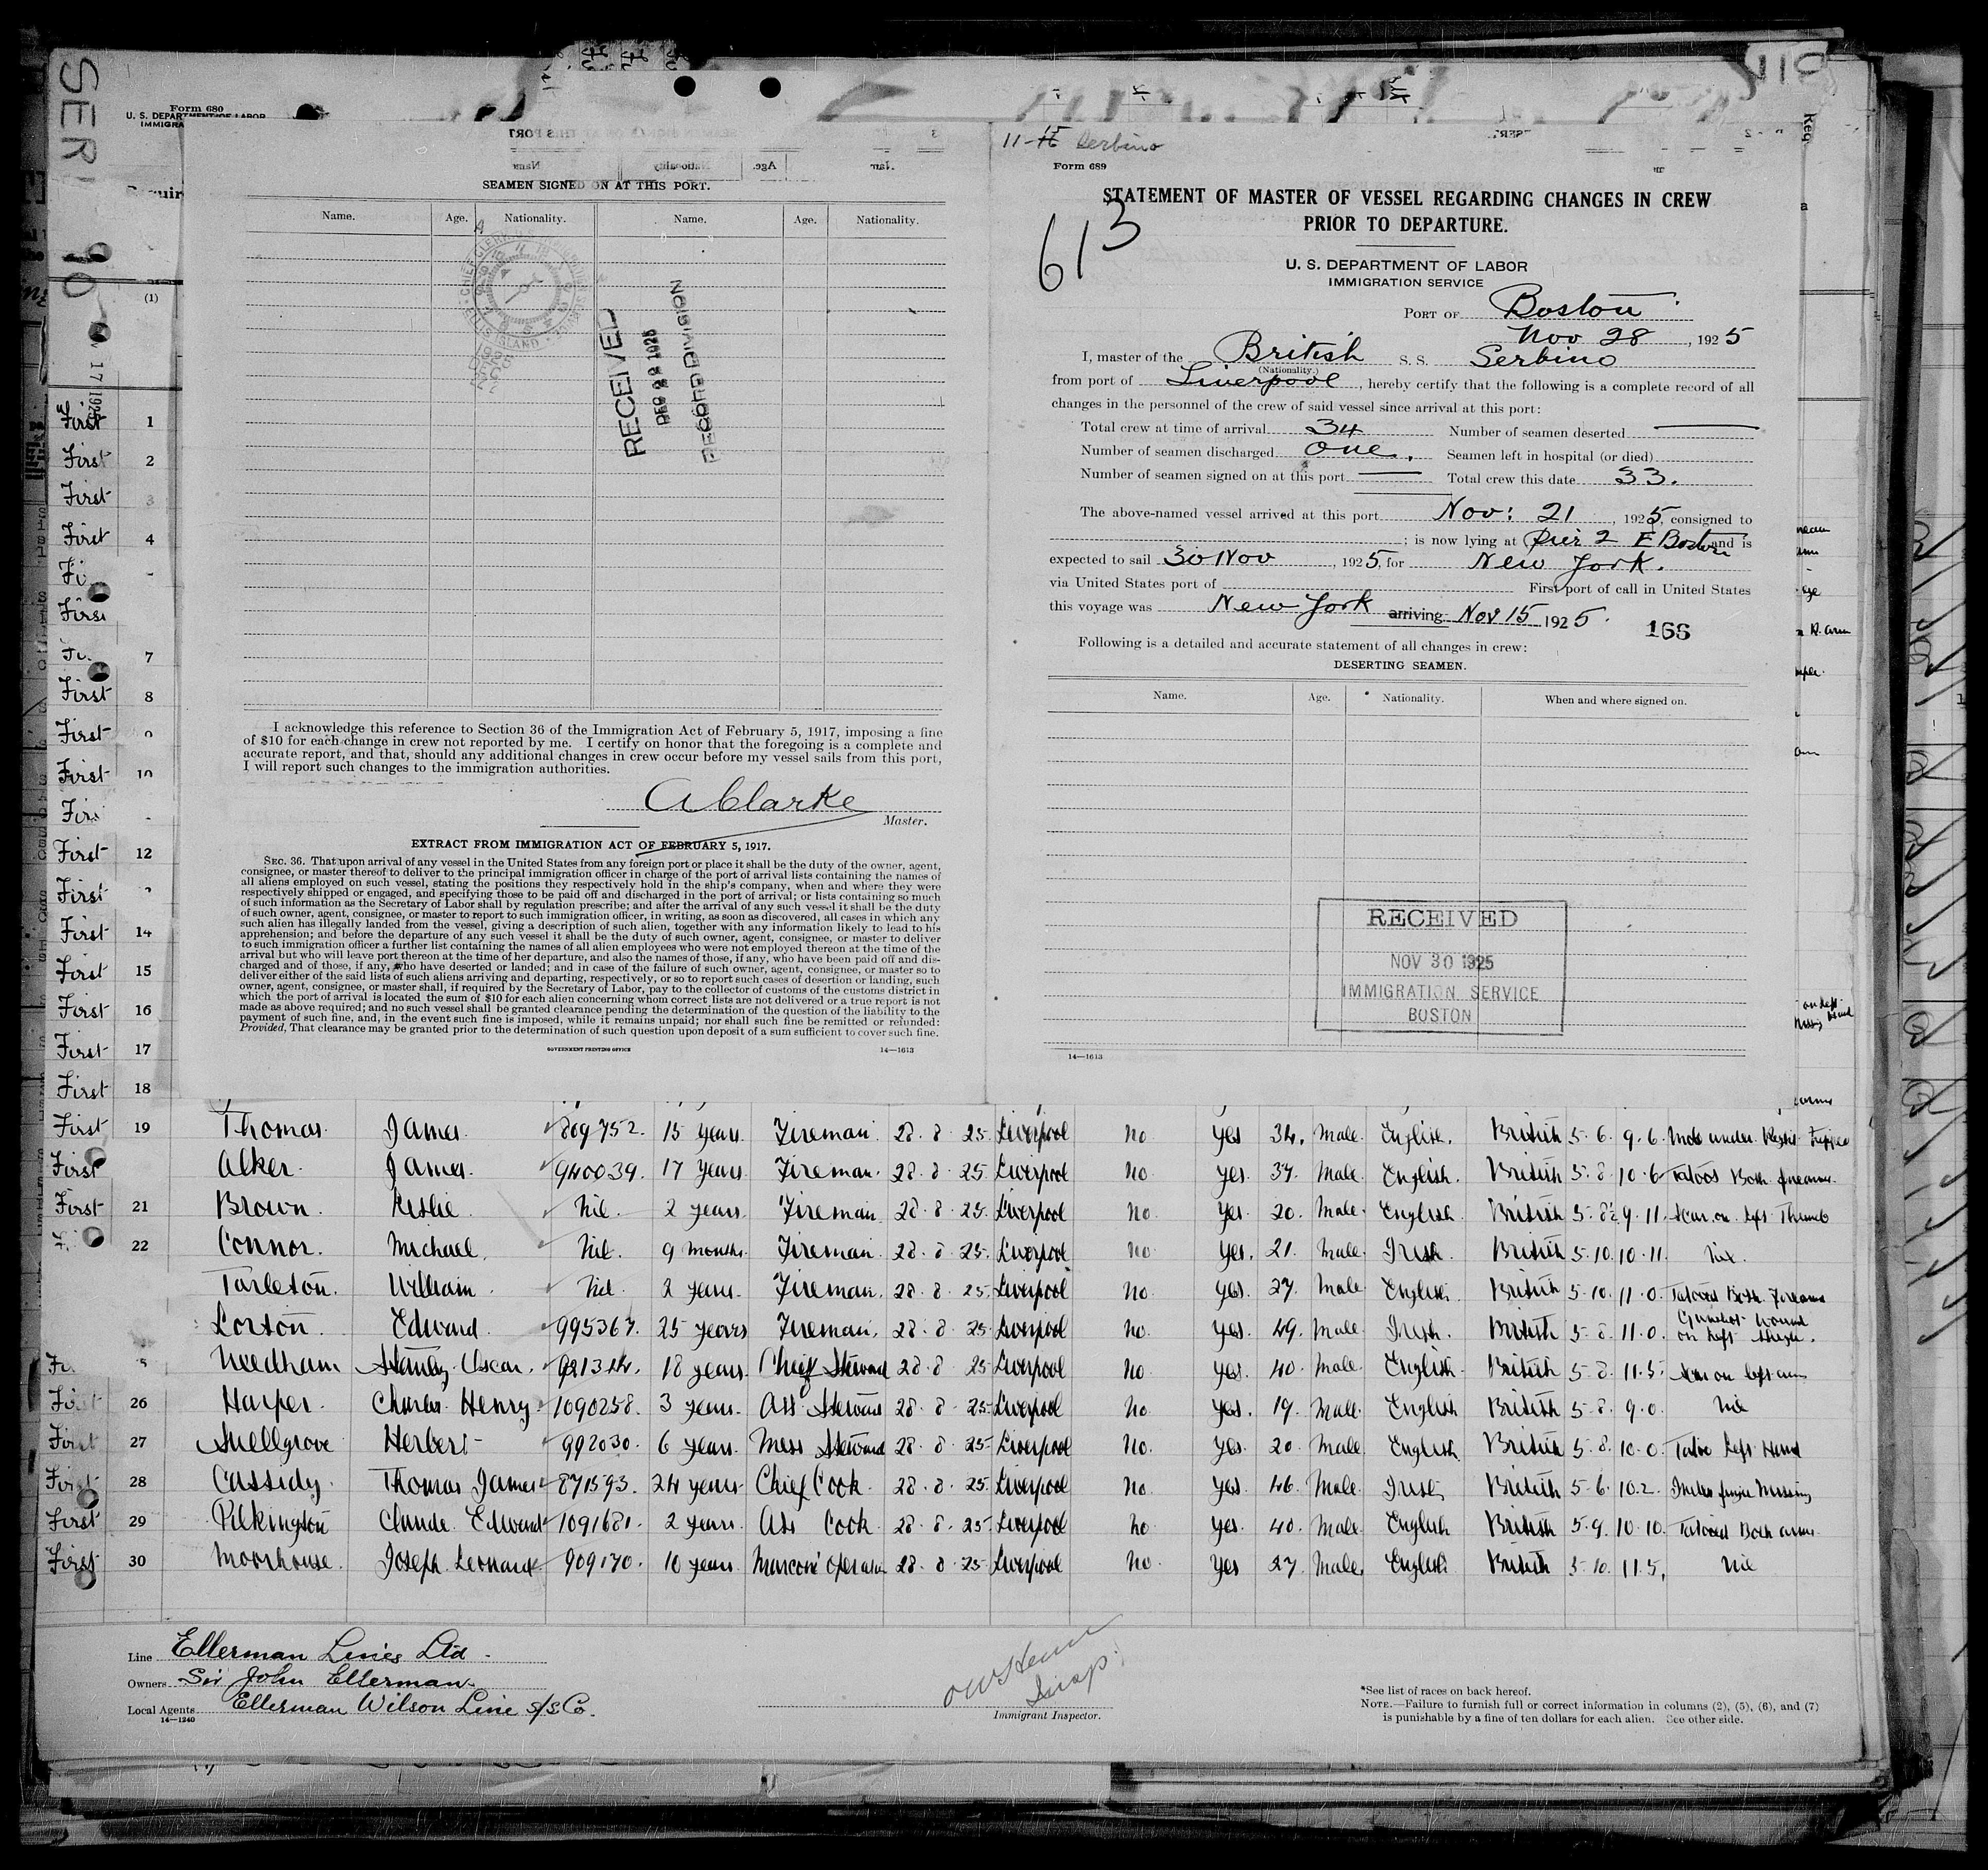 SER
Form 680
U. S. DEPARTMENT OF LABOR
IMMIGRA
110
SEAMEN SIGNED ON AT THIS PORT.
Name. Age. Nationality. Name. Age. Nationality.
RECEIVED
1925
RECORD DIVISION
I acknowledge this reference to Section 36 of the Immigration Act of February 5, 1917, imposing a fine
of $10 for each change in crew not reported by me. I certify on honor that the foregoing is a complete and
accurate report, and that, should any additional changes in crew occur before my vessel sails from this port,
I will report such changes to the immigration authorities.
A Clarke
Master.
EXTRACT FROM IMMIGRATION ACT OF FEBRUARY 5, 1917.
SEC. 36. That upon arrival of any vessel in the United States from any foreign port or place it shall be the duty of the owner, agent,
consignee, or master thereof to deliver to the principal immigration officer in charge of the port of arrival lists containing the names of
all aliens employed on such vessel, stating the positions they respectively hold in the ship's company, when and where they were
respectively shipped or engaged, and specifying those to be paid off and discharged in the port of arrival; or lists containing so much
of such information as the Secretary of Labor shall by regulation prescribe; and after the arrival of any such vessel it shall be the duty
of such owner, agent, consignee, or master to report to such immigration officer, in writing, as soon as discovered, all cases in which any
such alien has illegally landed from the vessel, giving a description of such alien, together with any information likely to lead to his
apprehension; and before the departure of any such vessel it shall be the duty of such owner, agent, consignee, or master to deliver
to such immigration officer a further list containing the names of all alien employees who were not employed thereon at the time of the
arrival but who will leave port thereon at the time of her departure, and also the names of those, if any, who have been paid off and dis-
charged and of those, if any, who have deserted or landed; and in case of the failure of such owner, agent, consignee, or master so to
deliver either of the said lists of such aliens arriving and departing, respectively, or so to report such cases of desertion or landing, such
owner, agent, consignee, or master shall, if required by the Secretary of Labor, pay to the collector of customs of the customs district in
which the port of arrival is located the sum of $10 for each alien concerning whom correct lists are not delivered or a true report is not
made as above required; and no such vessel shall be granted clearance pending the determination of the question of the liability to the
payment of such fine, and, in the event such fine is imposed, while it remains unpaid; nor shall such fine be remitted or refunded:
Provided, That clearance may be granted prior to the determination of such question upon deposit of a sum sufficient to cover such fine.
GOVERNMENT PRINTING OFFICE 14—1613
Serbino
Form 689
613
STATEMENT OF MASTER OF VESSEL REGARDING CHANGES IN CREW
PRIOR TO DEPARTURE.
U. S. DEPARTMENT OF LABOR
IMMIGRATION SERVICE
PORT OF Boston
Nov 28, 1925
I, master of the British S. S. Serbino
(Nationality.)
from port of Liverpool, hereby certify that the following is a complete record of all
changes in the personnel of the crew of said vessel since arrival at this port:
Total crew at time of arrival 34 Number of seamen deserted
Number of seamen discharged One. Seamen left in hospital (or died)
Number of seamen signed on at this port Total crew this date 33.
The above-named vessel arrived at this port Nov: 21, 1925, consigned to
; is now lying at Pier 2 E Boston and is
expected to sail 30 Nov, 1925, for New York.
via United States port of First port of call in United States
this voyage was New York arriving Nov 15 1925.
166
Following is a detailed and accurate statement of all changes in crew:
DESERTING SEAMEN.
Name. Age. Nationality. When and where signed on.
RECEIVED
NOV 30 1925
IMMIGRATION SERVICE
BOSTON
14—1613
(1)
First 1
First 2
First 3
First 4
First
7
First 8
First
First 10
First 12
First
First 14
First 15
First 16
First 17
First 18
First 19 Thomas James 809752 15 years Fireman 28.8.25 Liverpool No Yes 34 Male English British 5.6 9.6 Mole under Right
First Alker James 940039 17 years Fireman 28.8.25 Liverpool No Yes 37 Male English British 5.8 10.6 Tatoos Both forearms
First 21 Brown Leslie Nil 2 years Fireman 28.8.25 Liverpool No Yes 20 Male English British 5.8½ 9.11 Scar on Left Thumb
22 Connor Michael Nil 9 months Fireman 28.8.25 Liverpool No Yes 21 Male Irish British 5.10 10.11 Nil
Tarleton William Nil 2 years Fireman 28.8.25 Liverpool No Yes 27 Male English British 5.10 11.0 Tatooed Both Forearms
Lorton Edward 995367 25 years Fireman 28.8.25 Liverpool No Yes 49 Male Irish British 5.8 11.0 Gunshot Wound on Left Thigh
Needham Stanley Oscar 921344 18 years Chief Steward 28.8.25 Liverpool No Yes 40 Male English British 5.8 11.5 Scar on left arm
First 26 Harper Charles Henry 1090258 3 years Ass Steward 28.8.25 Liverpool No Yes 19 Male English British 5.8 9.0 Nil
First 27 Snellgrove Herbert 992030 6 years Mess Steward 28.8.25 Liverpool No Yes 20 Male English British 5.8 10.0 Tatoo Left Hand
First 28 Cassidy Thomas James 871593 24 years Chief Cook 28.8.25 Liverpool No Yes 46 Male Irish British 5.6 10.2 Index finger Missing
First 29 Pilkington Claude Edward 1091681 2 years Ass Cook 28.8.25 Liverpool No Yes 40 Male English British 5.9 10.10 Tatooed Both arms
First 30 Moorhouse Joseph Leonard 909170 10 years Marconi Operator 28.8.25 Liverpool No Yes 27 Male English British 5.10 11.5 Nil
Line Ellerman Lines Ltd.
Owners Sir John Ellerman
Local Agents Ellerman Wilson Line S/S Co.
14—1240
Insp.
Immigrant Inspector.
*See list of races on back hereof.
NOTE.—Failure to furnish full or correct information in columns (2), (5), (6), and (7)
is punishable by a fine of ten dollars for each alien. See other side.